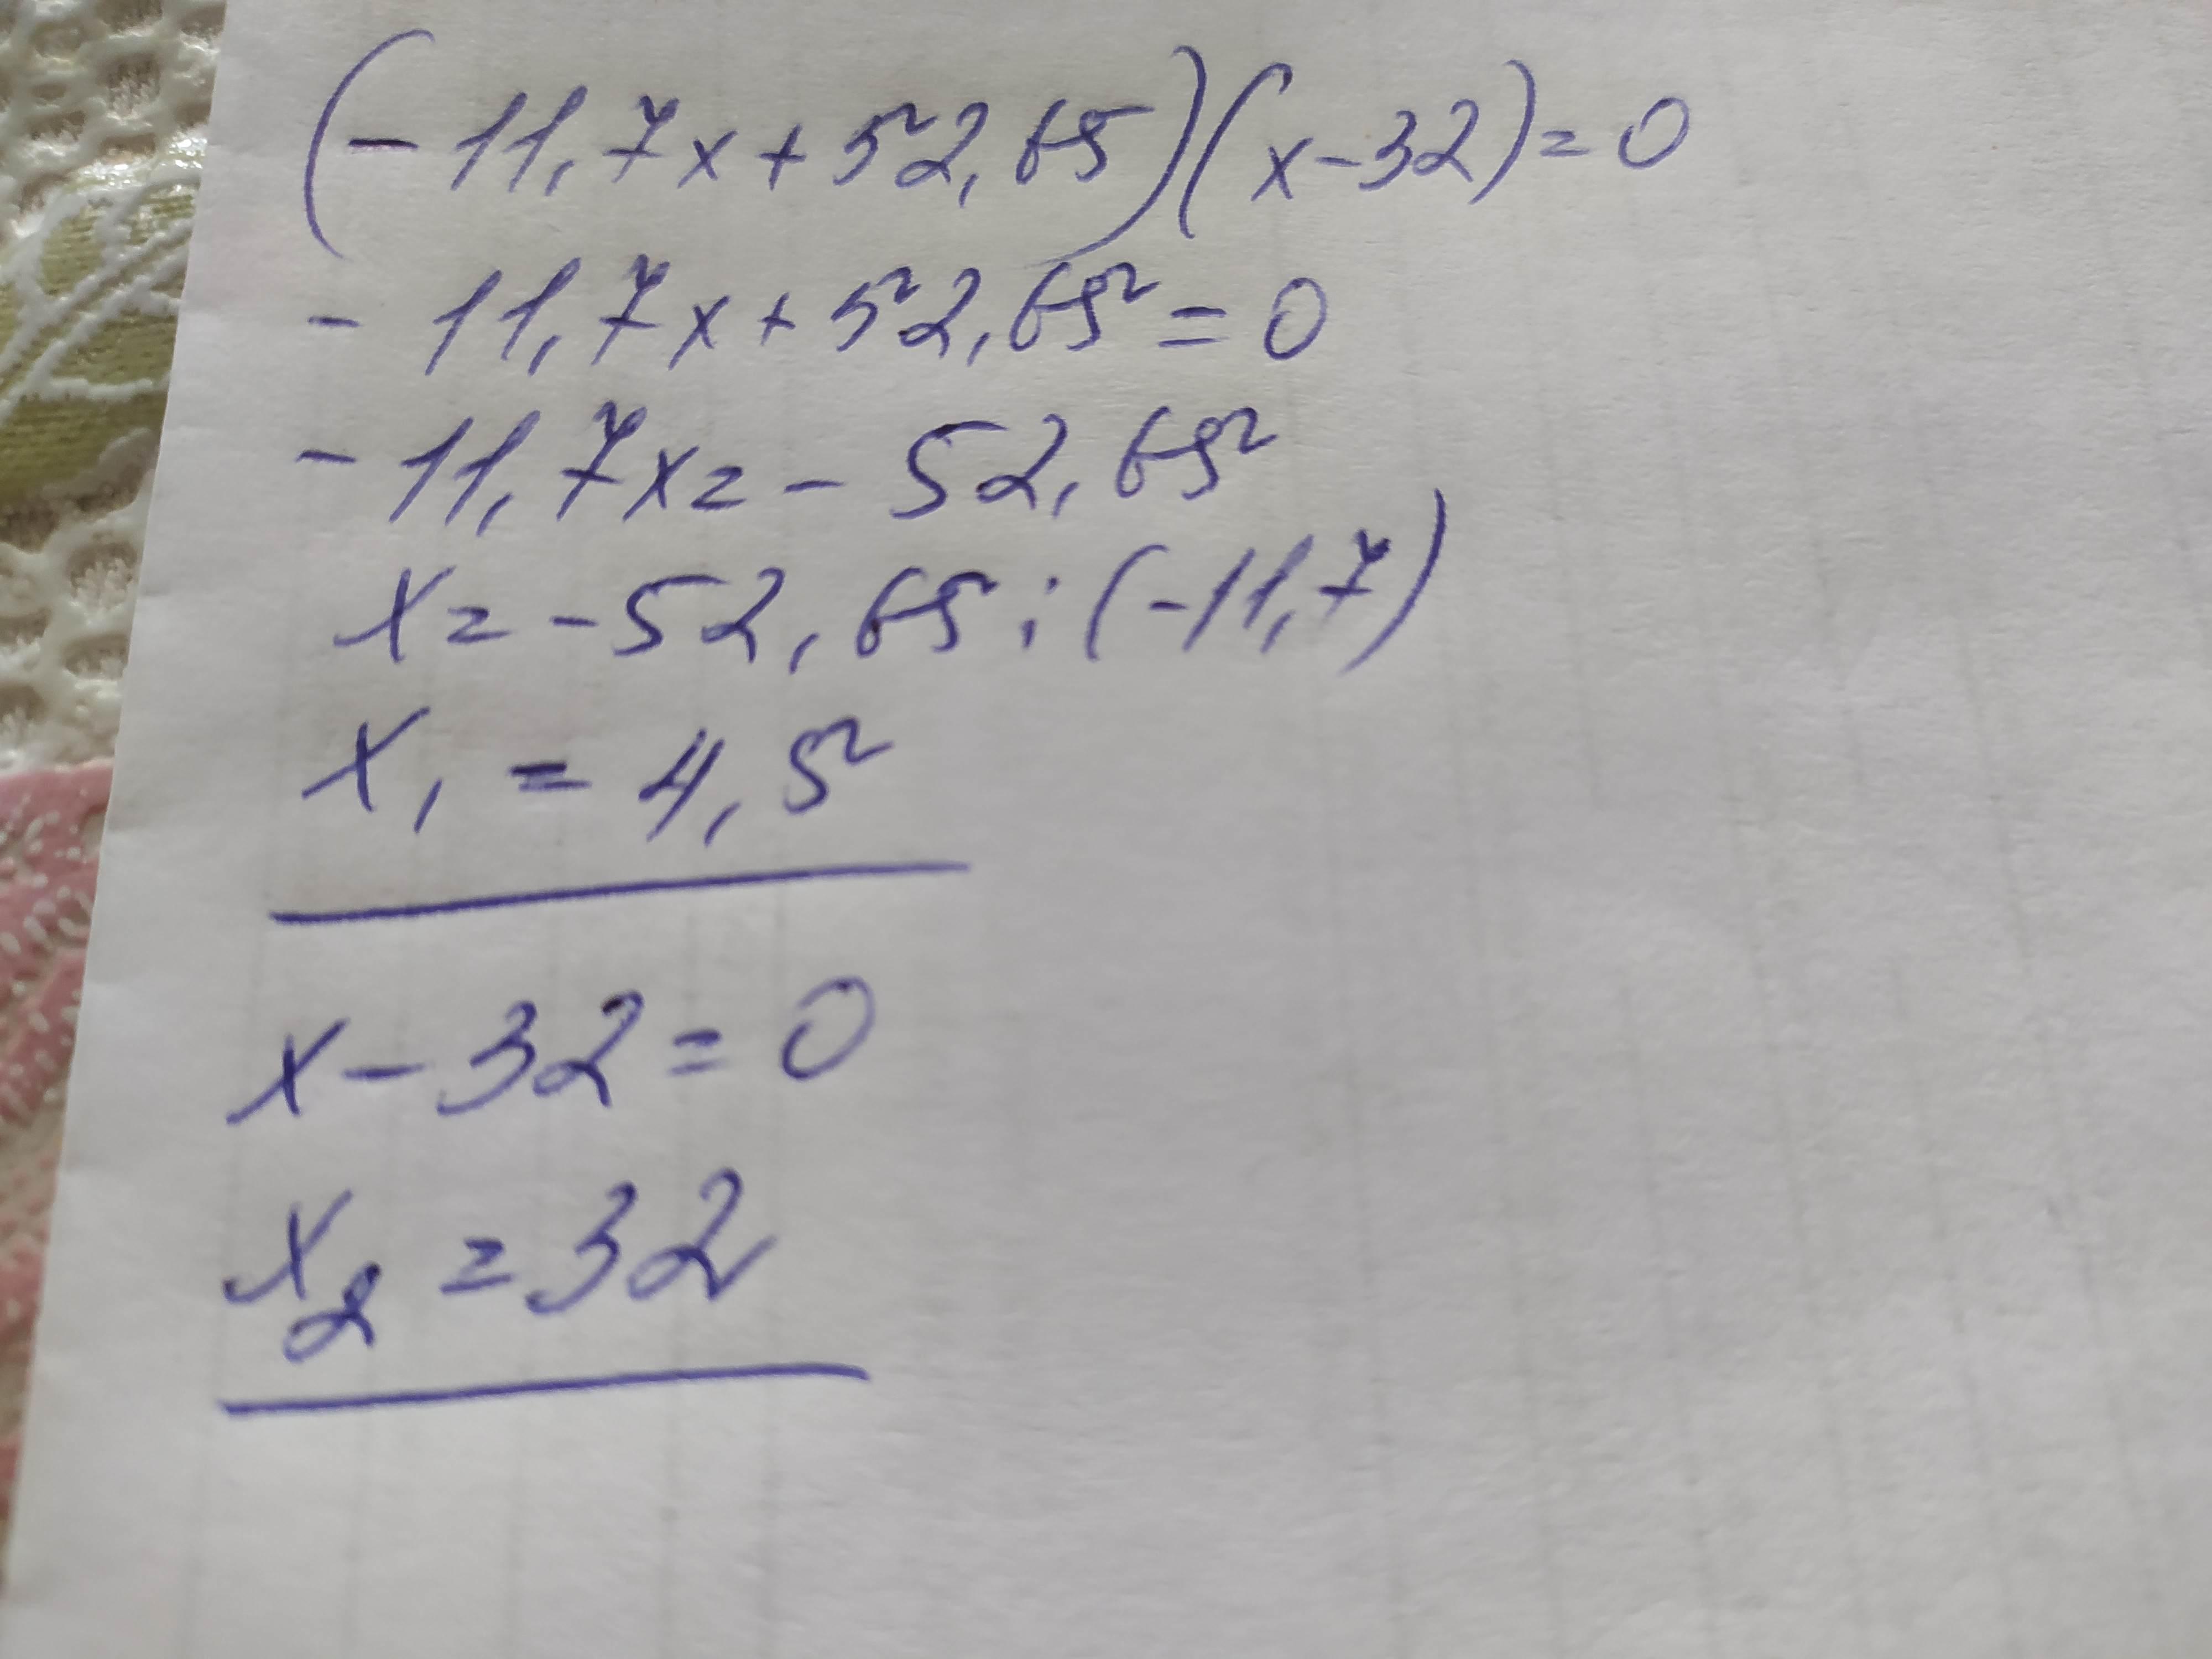 (-11,7x+52,65)(x-32)=0
-11,7x+52,65=0
-11,7x=-52,65
x=-52,65:(-11,7)
x₁=4,5
x-32=0
x₂=32